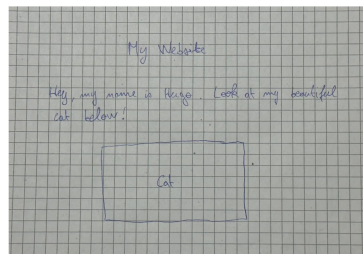 My Website
Hey, my name is Hugo. Look at my beautiful
cat below!
Cat